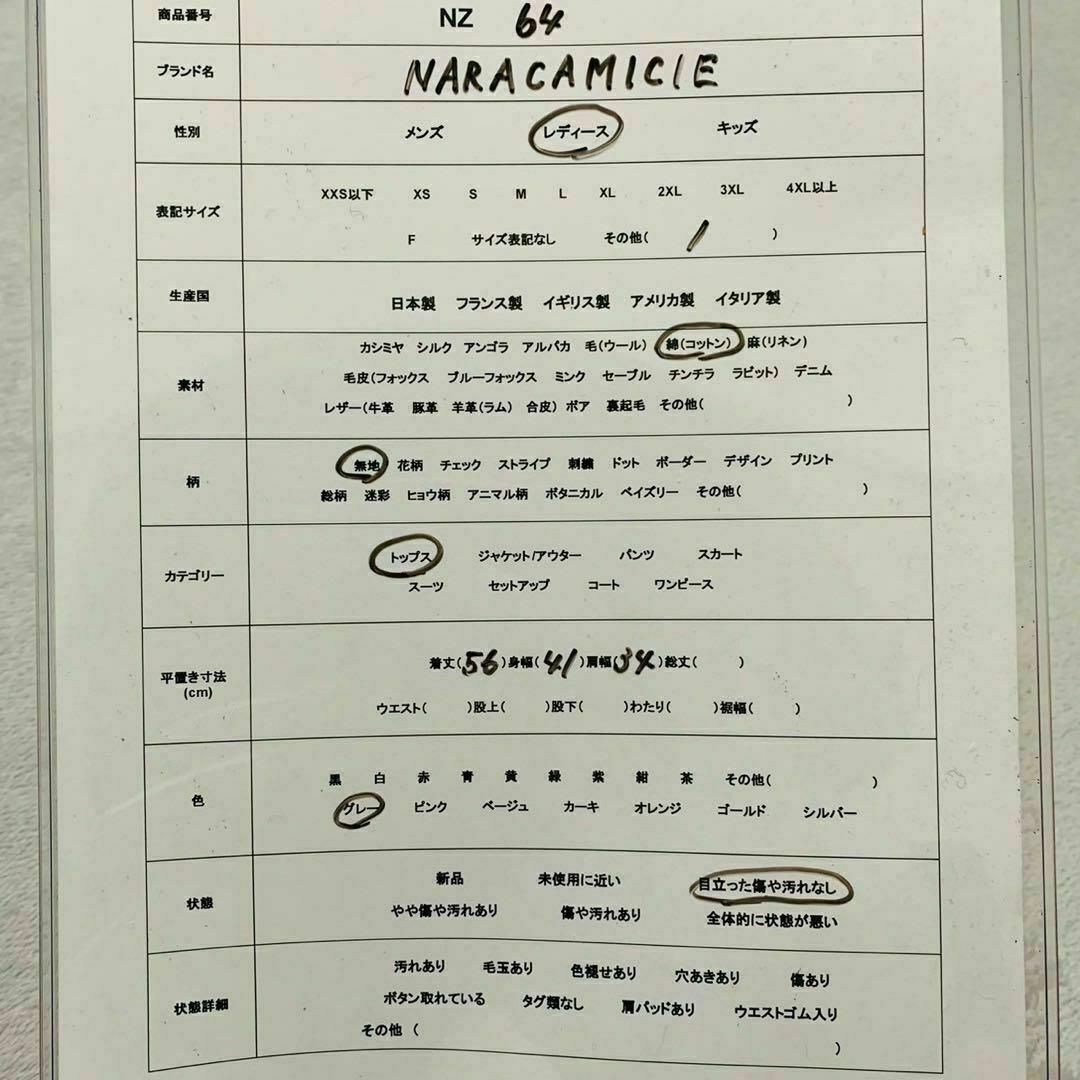 商品番号 NZ 64
ブランド名 NARACAMICIE
性別 メンズ レディース キッズ
XXS以下 XS S M L XL 2XL 3XL 4XL以上
表記サイズ
F サイズ表記なし その他( / )
生産国 日本製 フランス製 イギリス製 アメリカ製 イタリア製
カシミヤ シルク アンゴラ アルパカ 毛(ウール) 綿(コットン) 麻(リネン)
素材 毛皮(フォックス ブルーフォックス ミンク セーブル チンチラ ラビット) デニム
レザー(牛革 豚革 羊革(ラム) 合皮) ボア 裏起毛 その他( )
無地 花柄 チェック ストライプ 刺繍 ドット ボーダー デザイン プリント
柄
総柄 迷彩 ヒョウ柄 アニマル柄 ボタニカル ペイズリー その他( )
トップス ジャケット/アウター パンツ スカート
カテゴリー
スーツ セットアップ コート ワンピース
着丈(56)身幅(41)肩幅(34)総丈( )
平置き寸法
(cm)
ウエスト( )股上( )股下( )わたり( )裾幅( )
黒 白 赤 青 黄 緑 紫 紺 茶 その他( )
色
グレー ピンク ベージュ カーキ オレンジ ゴールド シルバー
新品 未使用に近い 目立った傷や汚れなし
状態
やや傷や汚れあり 傷や汚れあり 全体的に状態が悪い
汚れあり 毛玉あり 色褪せあり 穴あきあり 傷あり
状態詳細 ボタン取れている タグ類なし 肩パッドあり ウエストゴム入り
その他 ( )